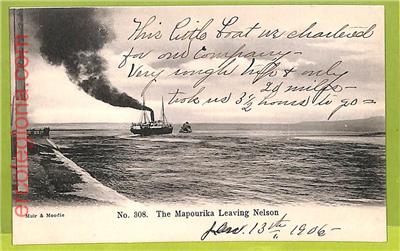 This little boat we chartered
for our Company -
Very rough trip & only
20 miles -
took us 3 1/2 hours to go -
ercolegloria.com
Muir & Moodie
No. 308. The Mapourika Leaving Nelson
Jan. 13th 1906 -